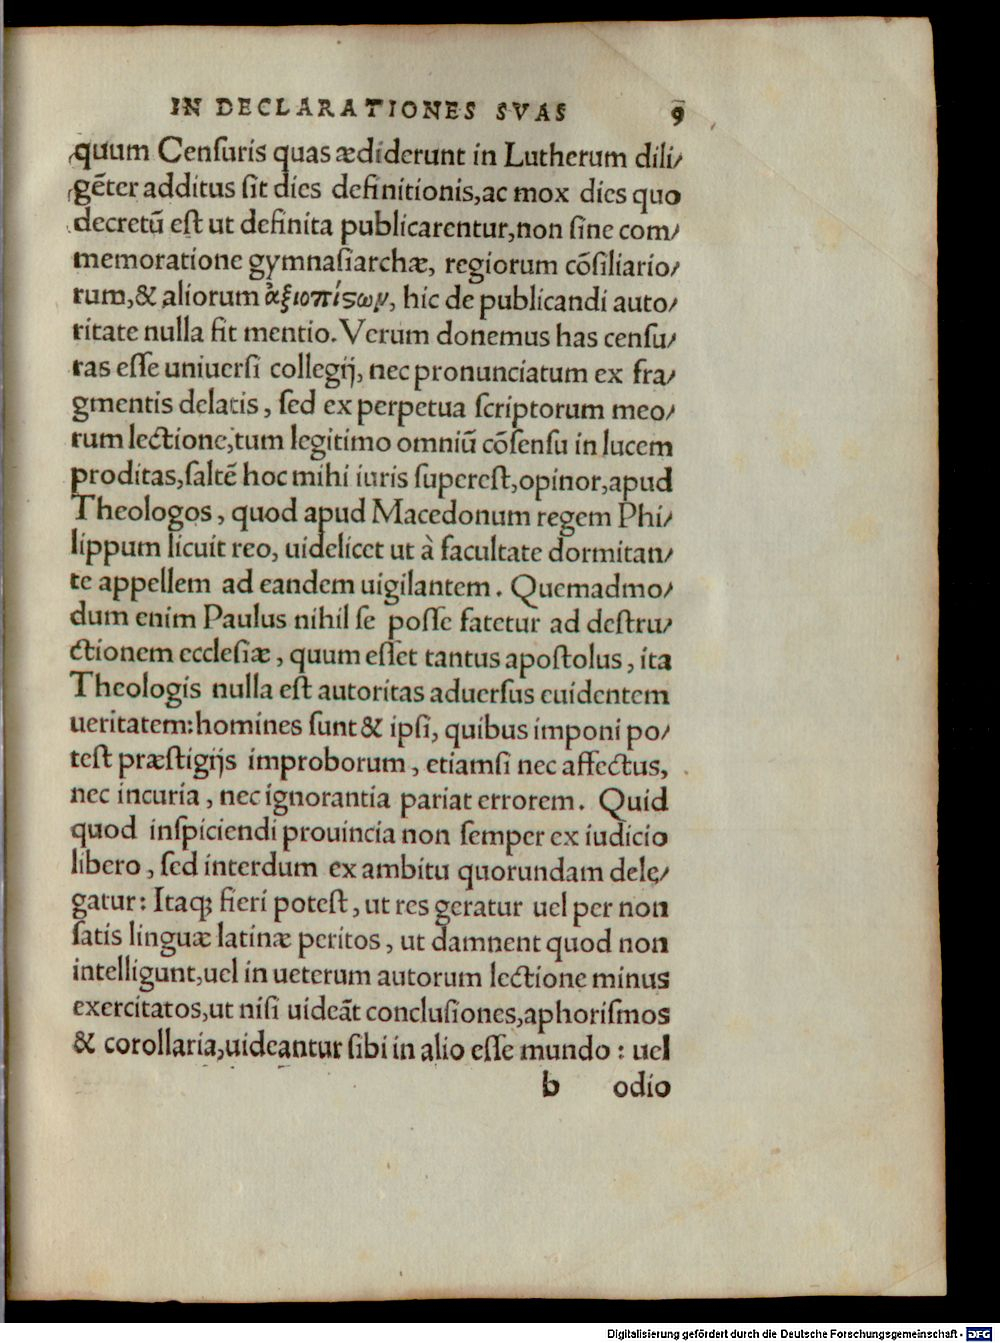 IN DECLARATIONES SVAS 9
quum Cenſuris quas ædiderunt in Lutherum dili⸗
gẽter additus ſit dies definitionis,ac mox dies quo
decretũ eſt ut definita publicarentur,non ſine com⸗
memoratione gymnaſiarchæ, regiorum cõſiliario⸗
rum,& aliorum ἀξιοπίςων, hic de publicandi auto⸗
ritate nulla fit mentio. Verum donemus has cenſu⸗
ras eſſe uniuerſi collegij, nec pronunciatum ex fra⸗
gmentis delatis, ſed ex perpetua ſcriptorum meo⸗
rum lectione,tum legitimo omniũ cõſenſu in lucem
proditas,ſaltẽ hoc mihi iuris ſupereſt,opinor,apud
Theologos, quod apud Macedonum regem Phi⸗
lippum licuit reo, uidelicet ut à facultate dormitan⸗
te appellem ad eandem uigilantem. Quemadmo⸗
dum enim Paulus nihil ſe poſſe fatetur ad deſtru⸗
ctionem eccleſiæ, quum eſſet tantus apoſtolus, ita
Theologis nulla eſt autoritas aduerſus euidentem
ueritatem:homines ſunt & ipſi, quibus imponi po⸗
teſt præſtigijs improborum, etiamſi nec affectus,
nec incuria, nec ignorantia pariat errorem. Quid
quod inſpiciendi prouincia non ſemper ex iudicio
libero, ſed interdum ex ambitu quorundam dele⸗
gatur: Itaq; fieri poteſt, ut res geratur uel per non
ſatis linguæ latinæ peritos, ut damnent quod non
intelligunt,uel in ueterum autorum lectione minus
exercitatos,ut niſi uideãt concluſiones,aphoriſmos
& corollaria,uideantur ſibi in alio eſſe mundo : uel
b odio
Digitalisierung gefördert durch die Deutsche Forschungsgemeinschaft - DFG